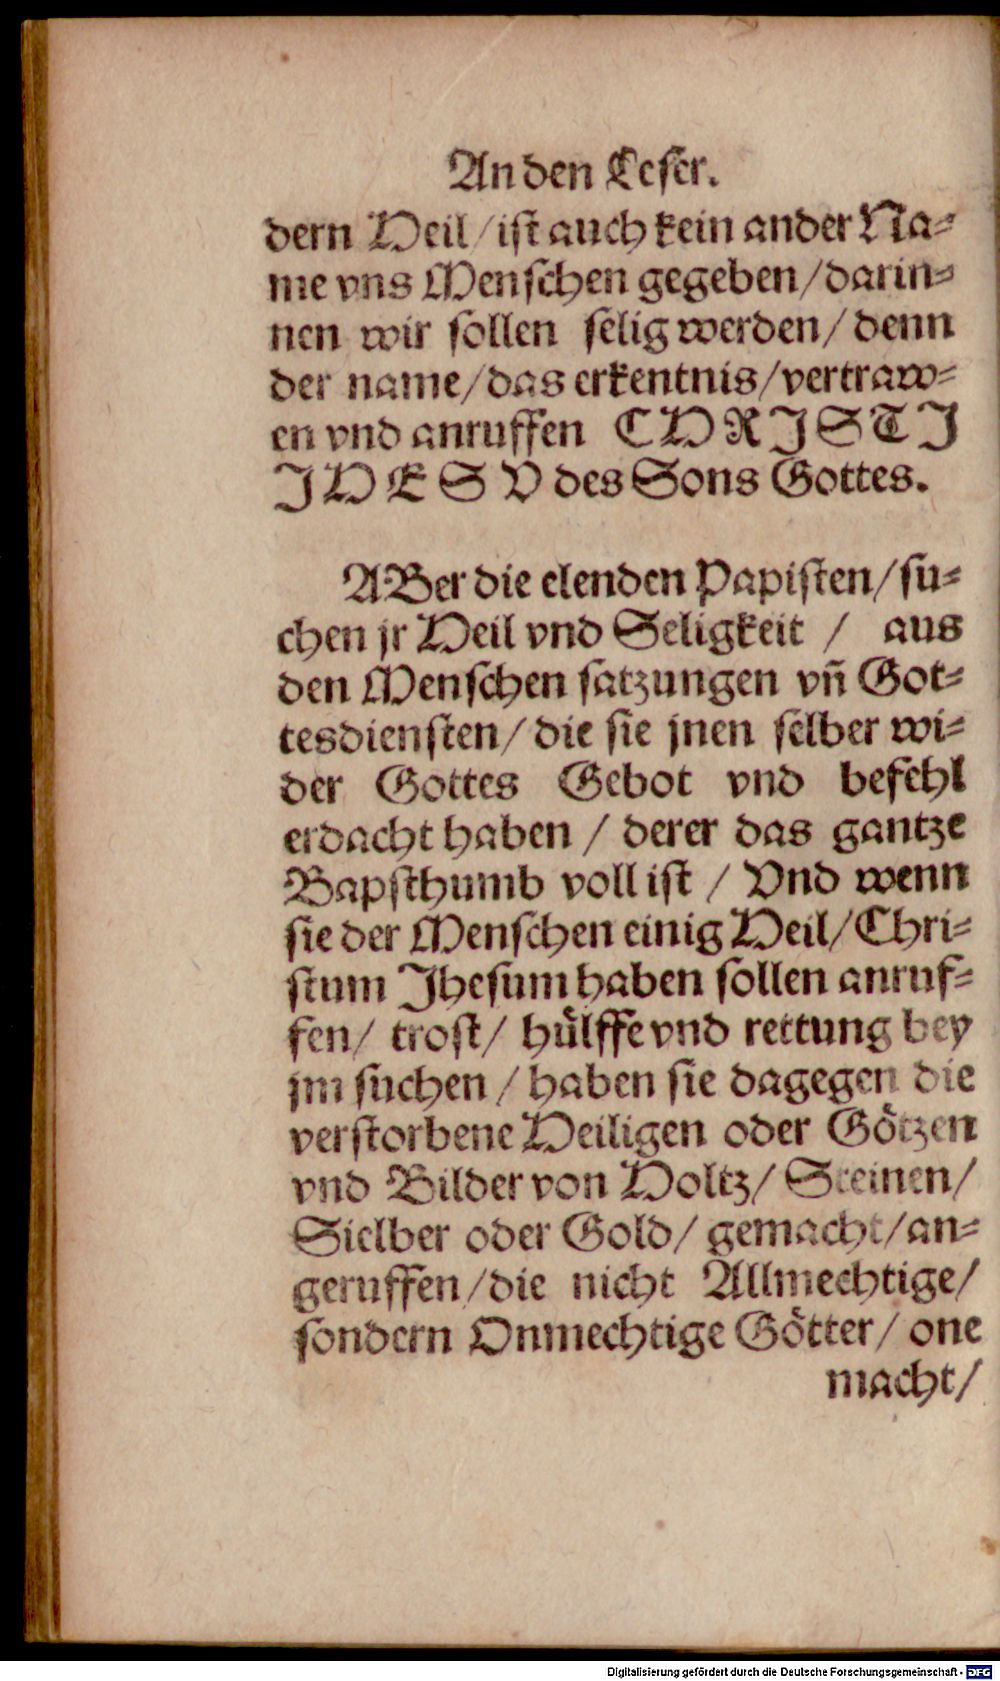 An den Leser.
dern Heil / ist auch kein ander Na⸗
me vns Menschen gegeben / darin⸗
nen wir sollen selig werden / denn
der name / das erkentnis / vertraw⸗
en vnd anruffen CHRISTI
JHESV des Sons Gottes.
ABer die elenden Papisten / su⸗
chen jr Heil vnd Seligkeit / aus
den Menschen satzungen vñ Got⸗
tesdiensten / die sie jnen selber wi⸗
der Gottes Gebot vnd befehl
erdacht haben / derer das gantze
Bapsthumb voll ist / Vnd wenn
sie der Menschen einig Heil / Chri⸗
stum Jhesum haben sollen anruf⸗
fen / trost / hůlffe vnd rettung bey
jm suchen / haben sie dagegen die
verstorbene Heiligen oder Gőtzen
vnd Bilder von Holtz / Steinen /
Sielber oder Gold / gemacht / an⸗
geruffen / die nicht Allmechtige /
sondern Onmechtige Gőtter / one
macht /
Digitalisierung gefördert durch die Deutsche Forschungsgemeinschaft - DFG